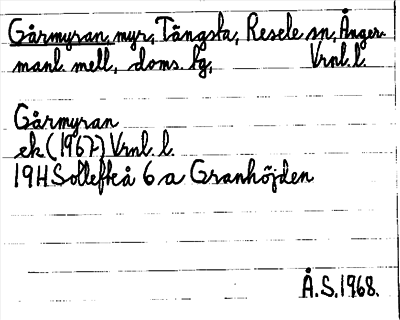 Gårmyran, myr, Tängsta, Resele sn, Ånger-
manl. mell., doms. lg, Vrnl. l.
Gårmyran
ek (1967) Vrnl. l.
19H Sollefteå 6 a Granhöjden
Å.S. 1968.